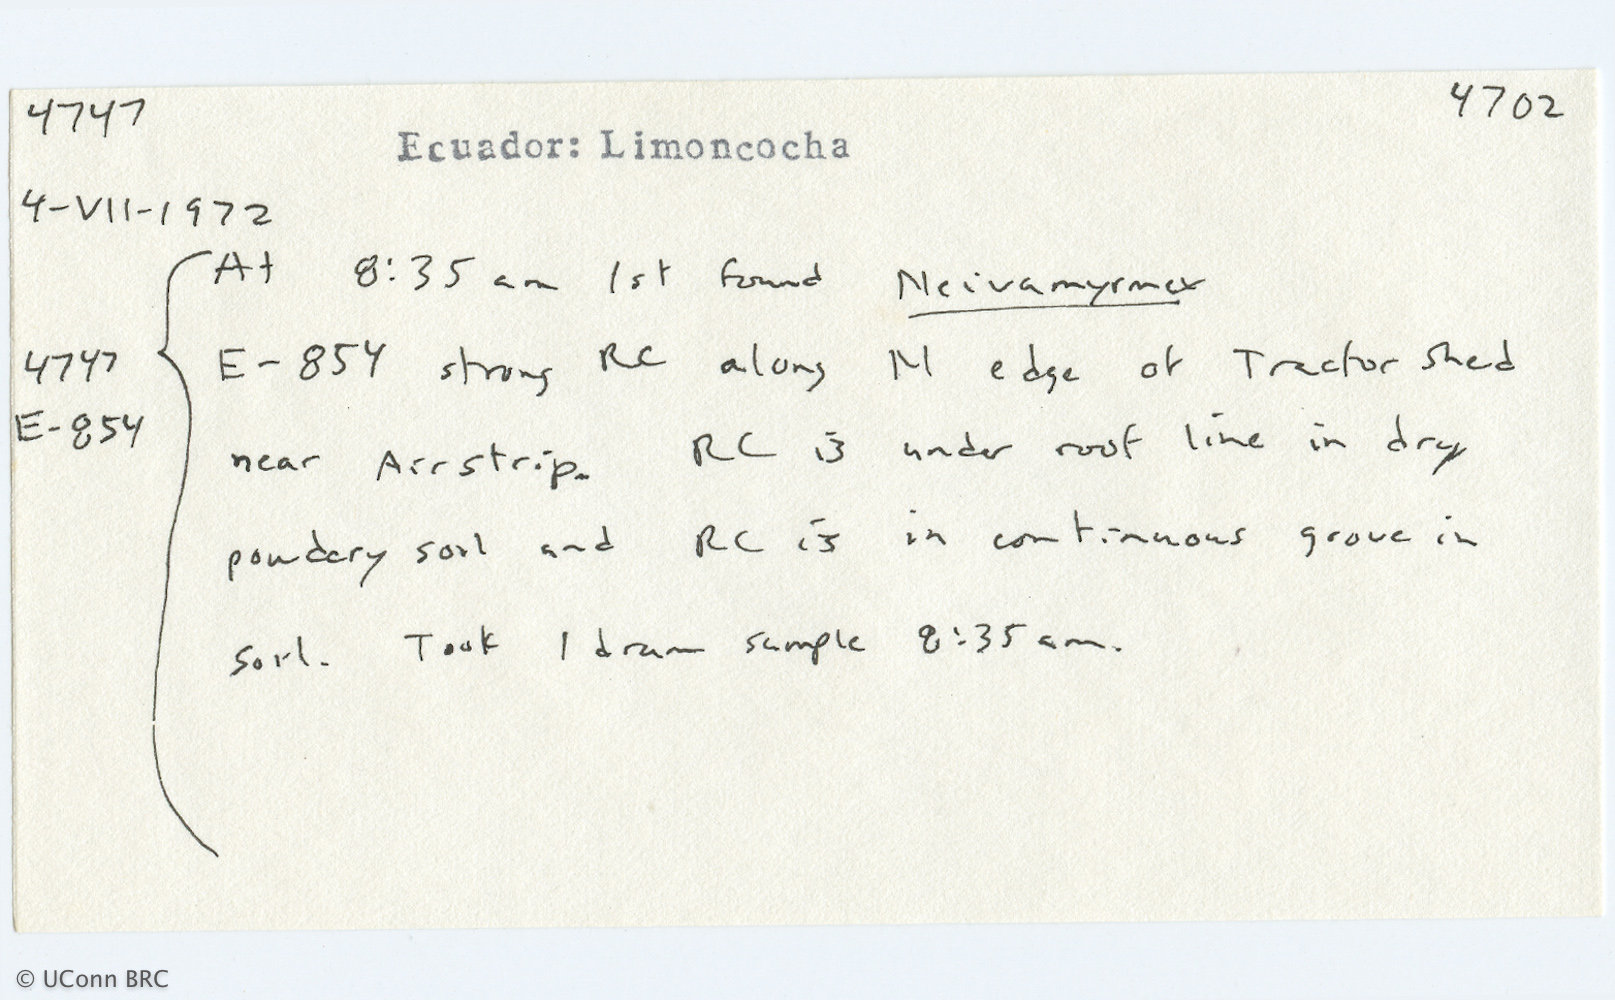 4747
4702
Ecuador: Limoncocha
4-VII-1972
At 8:35 am 1st found Neivamyrmex
4747
E-854 strong RC along N edge of Tractor shed
E-854
near Airstrip. RC is under roof line in dry
powdery soil and RC is in continuous grove in
soil. Took 1 dram sample 8:35 am.
© UConn BRC